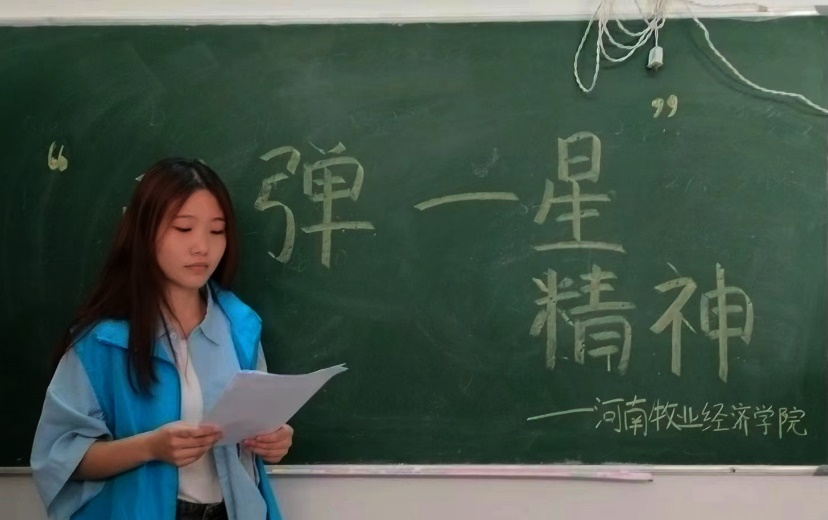 “ 弹一星”
精神
——河南牧业经济学院